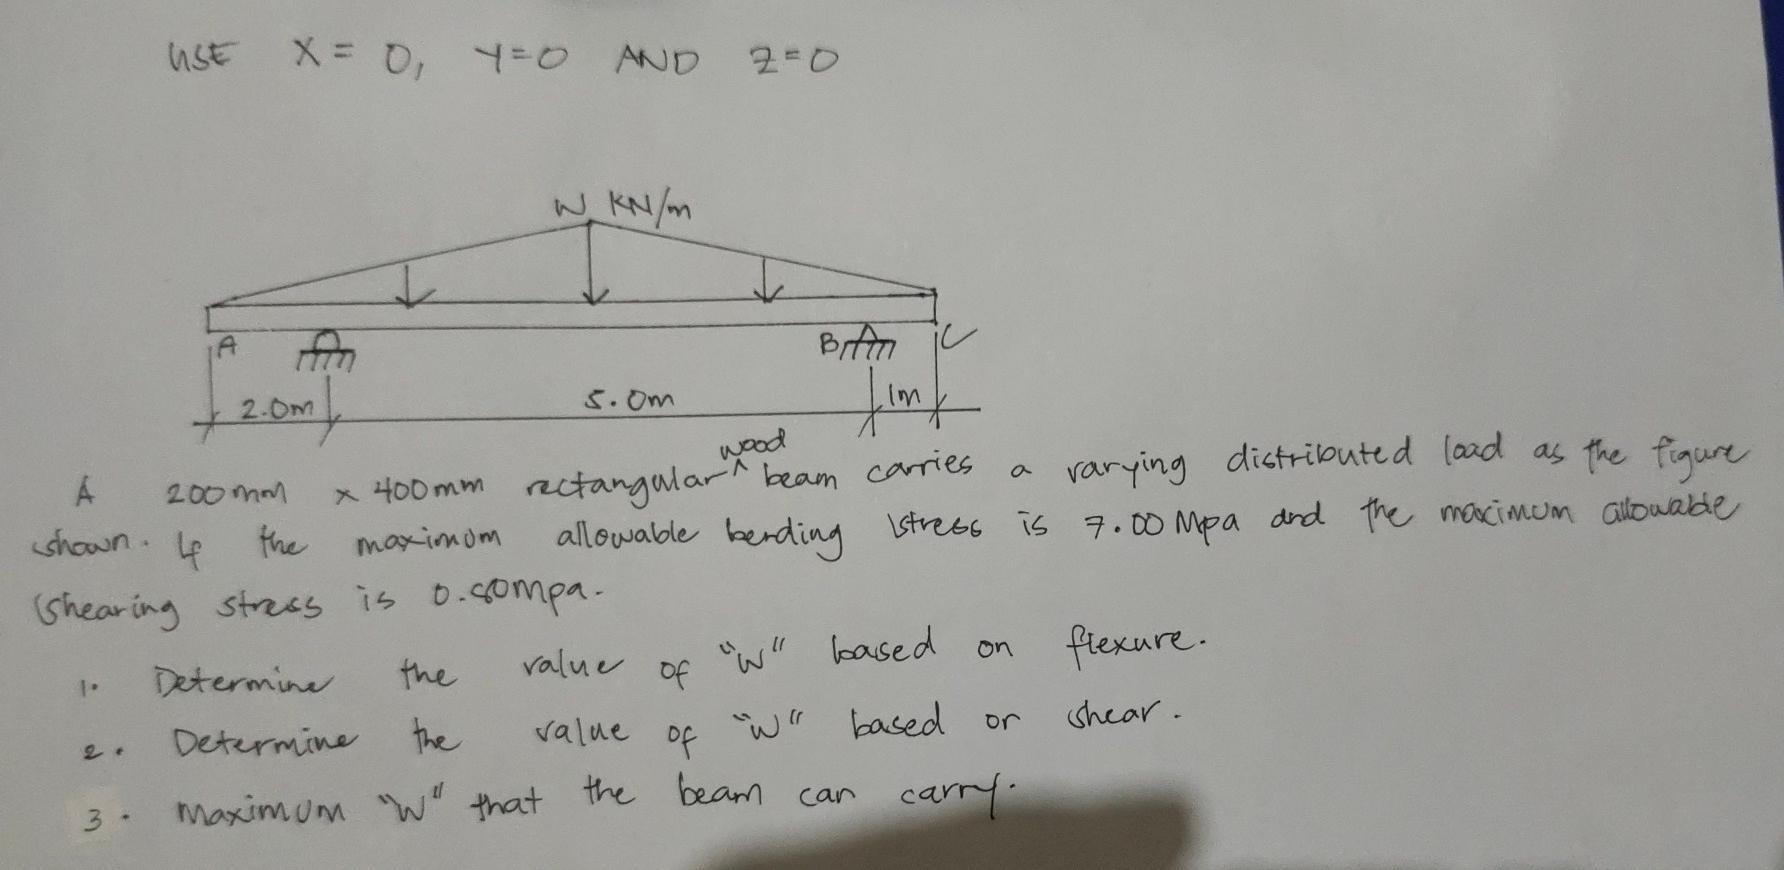 USE X = 0, Y=0 AND Z=0
W KN/m
A
B
C
2.0m
5.0m
1m
wood
A 200mm x 400mm rectangular ^ beam carries a varying distributed load as the figure
shown. If the maximum allowable bending stress is 7.00 Mpa and the maximum allowable
shearing stress is mpa.
1. Determine the value of "W" based on flexure.
2. Determine the value of "W" based or shear.
3. Maximum "W" that the beam can carry.